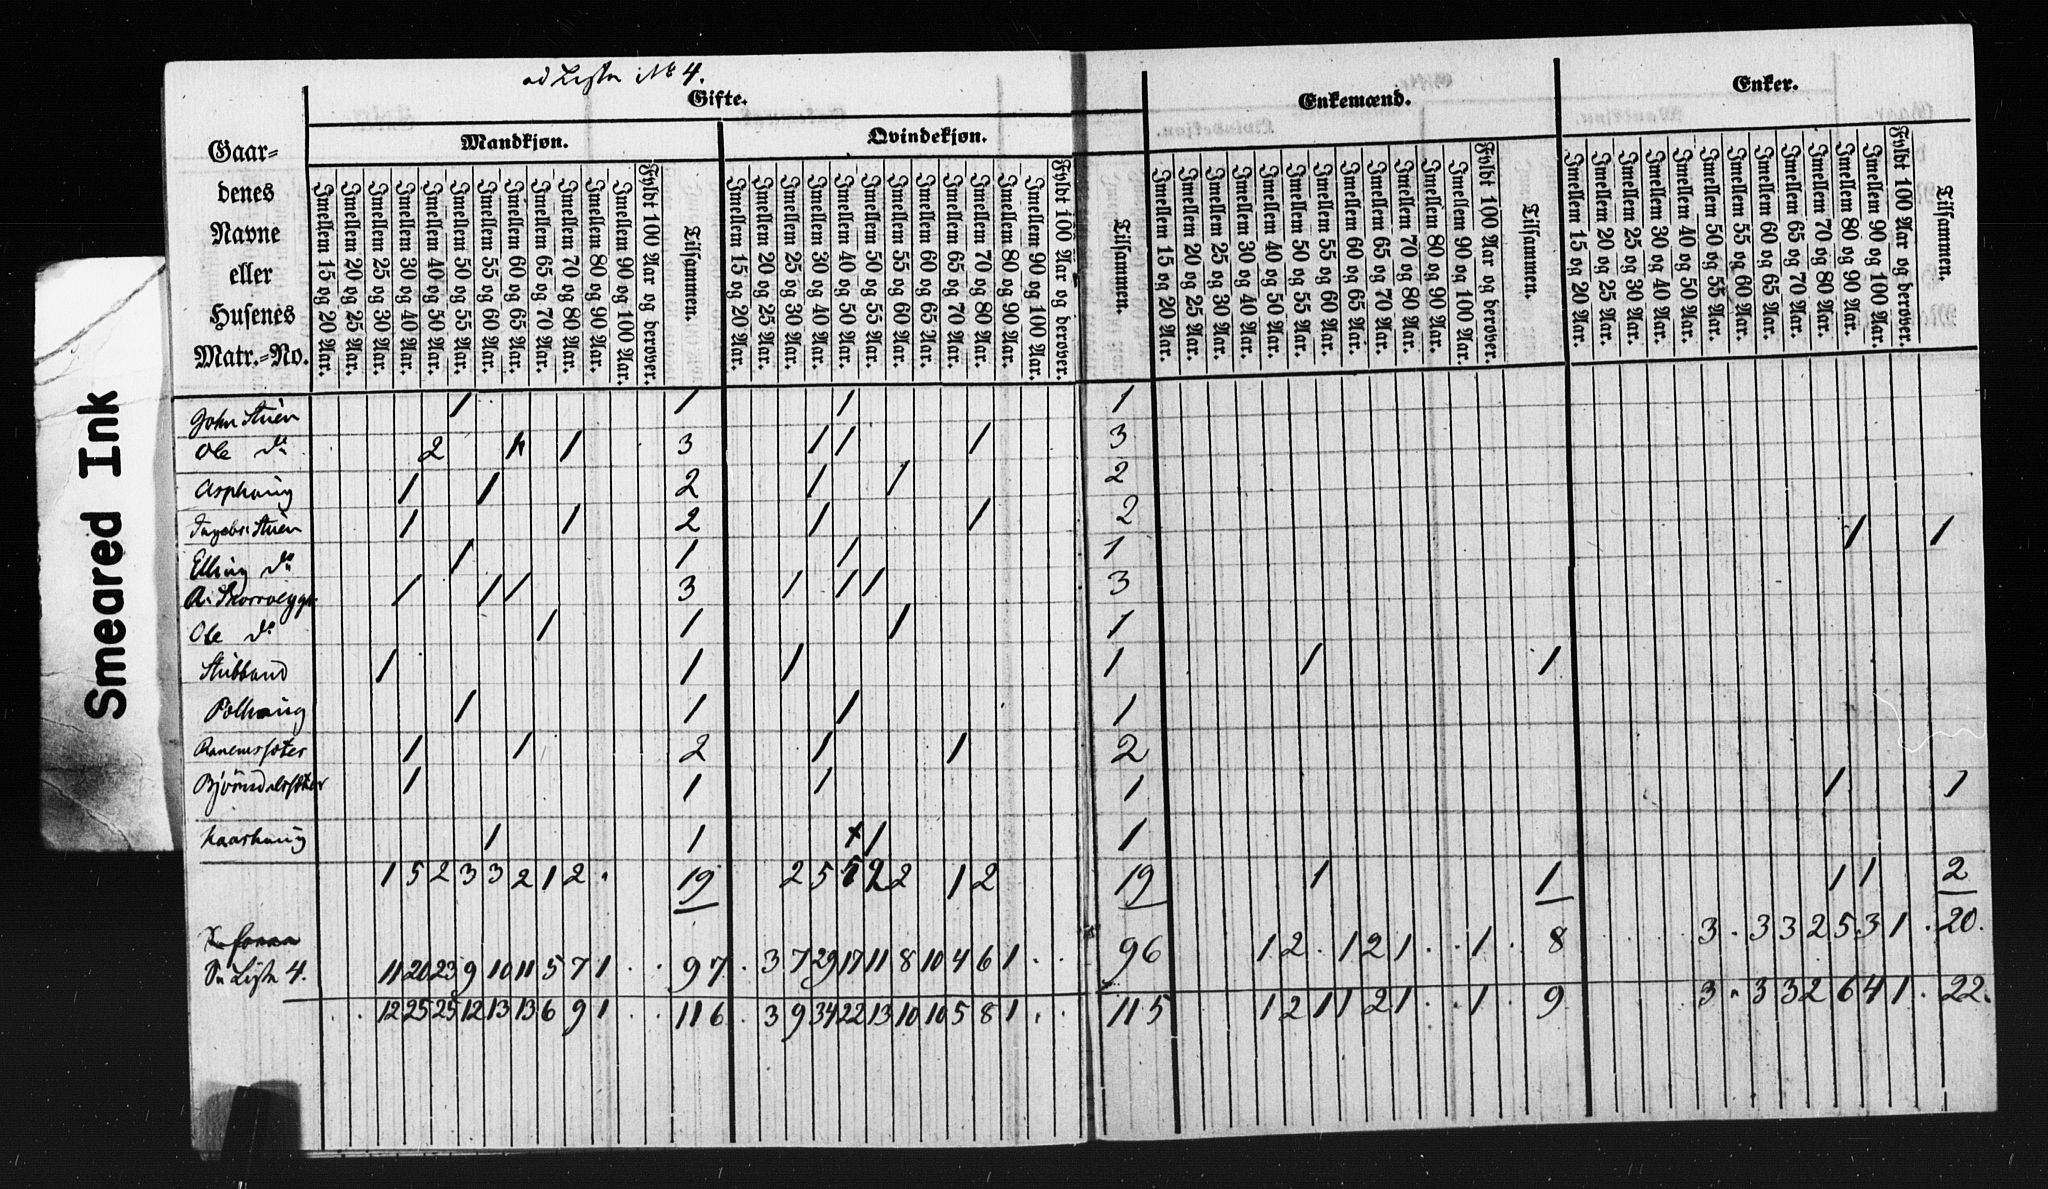 ad Liste No 4.
Gaardenes Navne eller Husenes Matr.-No.
Gifte.
Enkemænd.
Enker.
Mandkjøn.
Qvindekjøn.
Imellem 15 og 20 Aar.
Imellem 20 og 25 Aar.
Imellem 25 og 30 Aar.
Imellem 30 og 40 Aar.
Imellem 40 og 50 Aar.
Imellem 50 og 55 Aar.
Imellem 55 og 60 Aar.
Imellem 60 og 65 Aar.
Imellem 65 og 70 Aar.
Imellem 70 og 80 Aar.
Imellem 80 og 90 Aar.
Imellem 90 og 100 Aar.
Fyldt 100 Aar og derover.
Tilsammen.
Imellem 15 og 20 Aar.
Imellem 20 og 25 Aar.
Imellem 25 og 30 Aar.
Imellem 30 og 40 Aar.
Imellem 40 og 50 Aar.
Imellem 50 og 55 Aar.
Imellem 55 og 60 Aar.
Imellem 60 og 65 Aar.
Imellem 65 og 70 Aar.
Imellem 70 og 80 Aar.
Imellem 80 og 90 Aar.
Imellem 90 og 100 Aar.
Fyldt 100 Aar og derover.
Tilsammen.
Imellem 15 og 20 Aar.
Imellem 20 og 25 Aar.
Imellem 25 og 30 Aar.
Imellem 30 og 40 Aar.
Imellem 40 og 50 Aar.
Imellem 50 og 55 Aar.
Imellem 55 og 60 Aar.
Imellem 60 og 65 Aar.
Imellem 65 og 70 Aar.
Imellem 70 og 80 Aar.
Imellem 80 og 90 Aar.
Imellem 90 og 100 Aar.
Fyldt 100 Aar og derover.
Tilsammen.
Imellem 15 og 20 Aar.
Imellem 20 og 25 Aar.
Imellem 25 og 30 Aar.
Imellem 30 og 40 Aar.
Imellem 40 og 50 Aar.
Imellem 50 og 55 Aar.
Imellem 55 og 60 Aar.
Imellem 60 og 65 Aar.
Imellem 65 og 70 Aar.
Imellem 70 og 80 Aar.
Imellem 80 og 90 Aar.
Imellem 90 og 100 Aar.
Fyldt 100 Aar og derover.
Tilsammen.
John Stuen 1 1 1 1
Ole do 2 1 3 1 1 1 3
Asphaug 1 1 2 1 1 2
Ingebr. Stuen 1 1 2 1 1 2 1 1
Elling do 1 1 1 1
A. 1 1 1 3 1 1 1 3
Ole do 1 1 1 1
Stubband 1 1 1 1 1 1
Polhaug 1 1 1 1
Ranemsfoter 1 1 2 1 1 2
1 1 1 1 1 1
Kaarhaug 1 1 x 1 1
1 5 2 3 3 2 1 2 . 19 2 5 5 2 2 1 2 19 1 1 1 1 2
Liste 4. 11 20 23 9 10 11 5 7 1 . . 97 . 3 7 29 17 11 8 10 4 6 1 . . 96 1 2 . 1 2 1 . . 1 . 8 3 . 3 3 2 5 3 1 . 20.
12 25 25 12 13 13 6 9 1 . . 116 . 3 9 34 22 13 10 10 5 8 1 . . 115 1 2 1 1 2 1 . . 1 9 3 . 3 3 2 6 4 1 . 22.
Smeared Ink